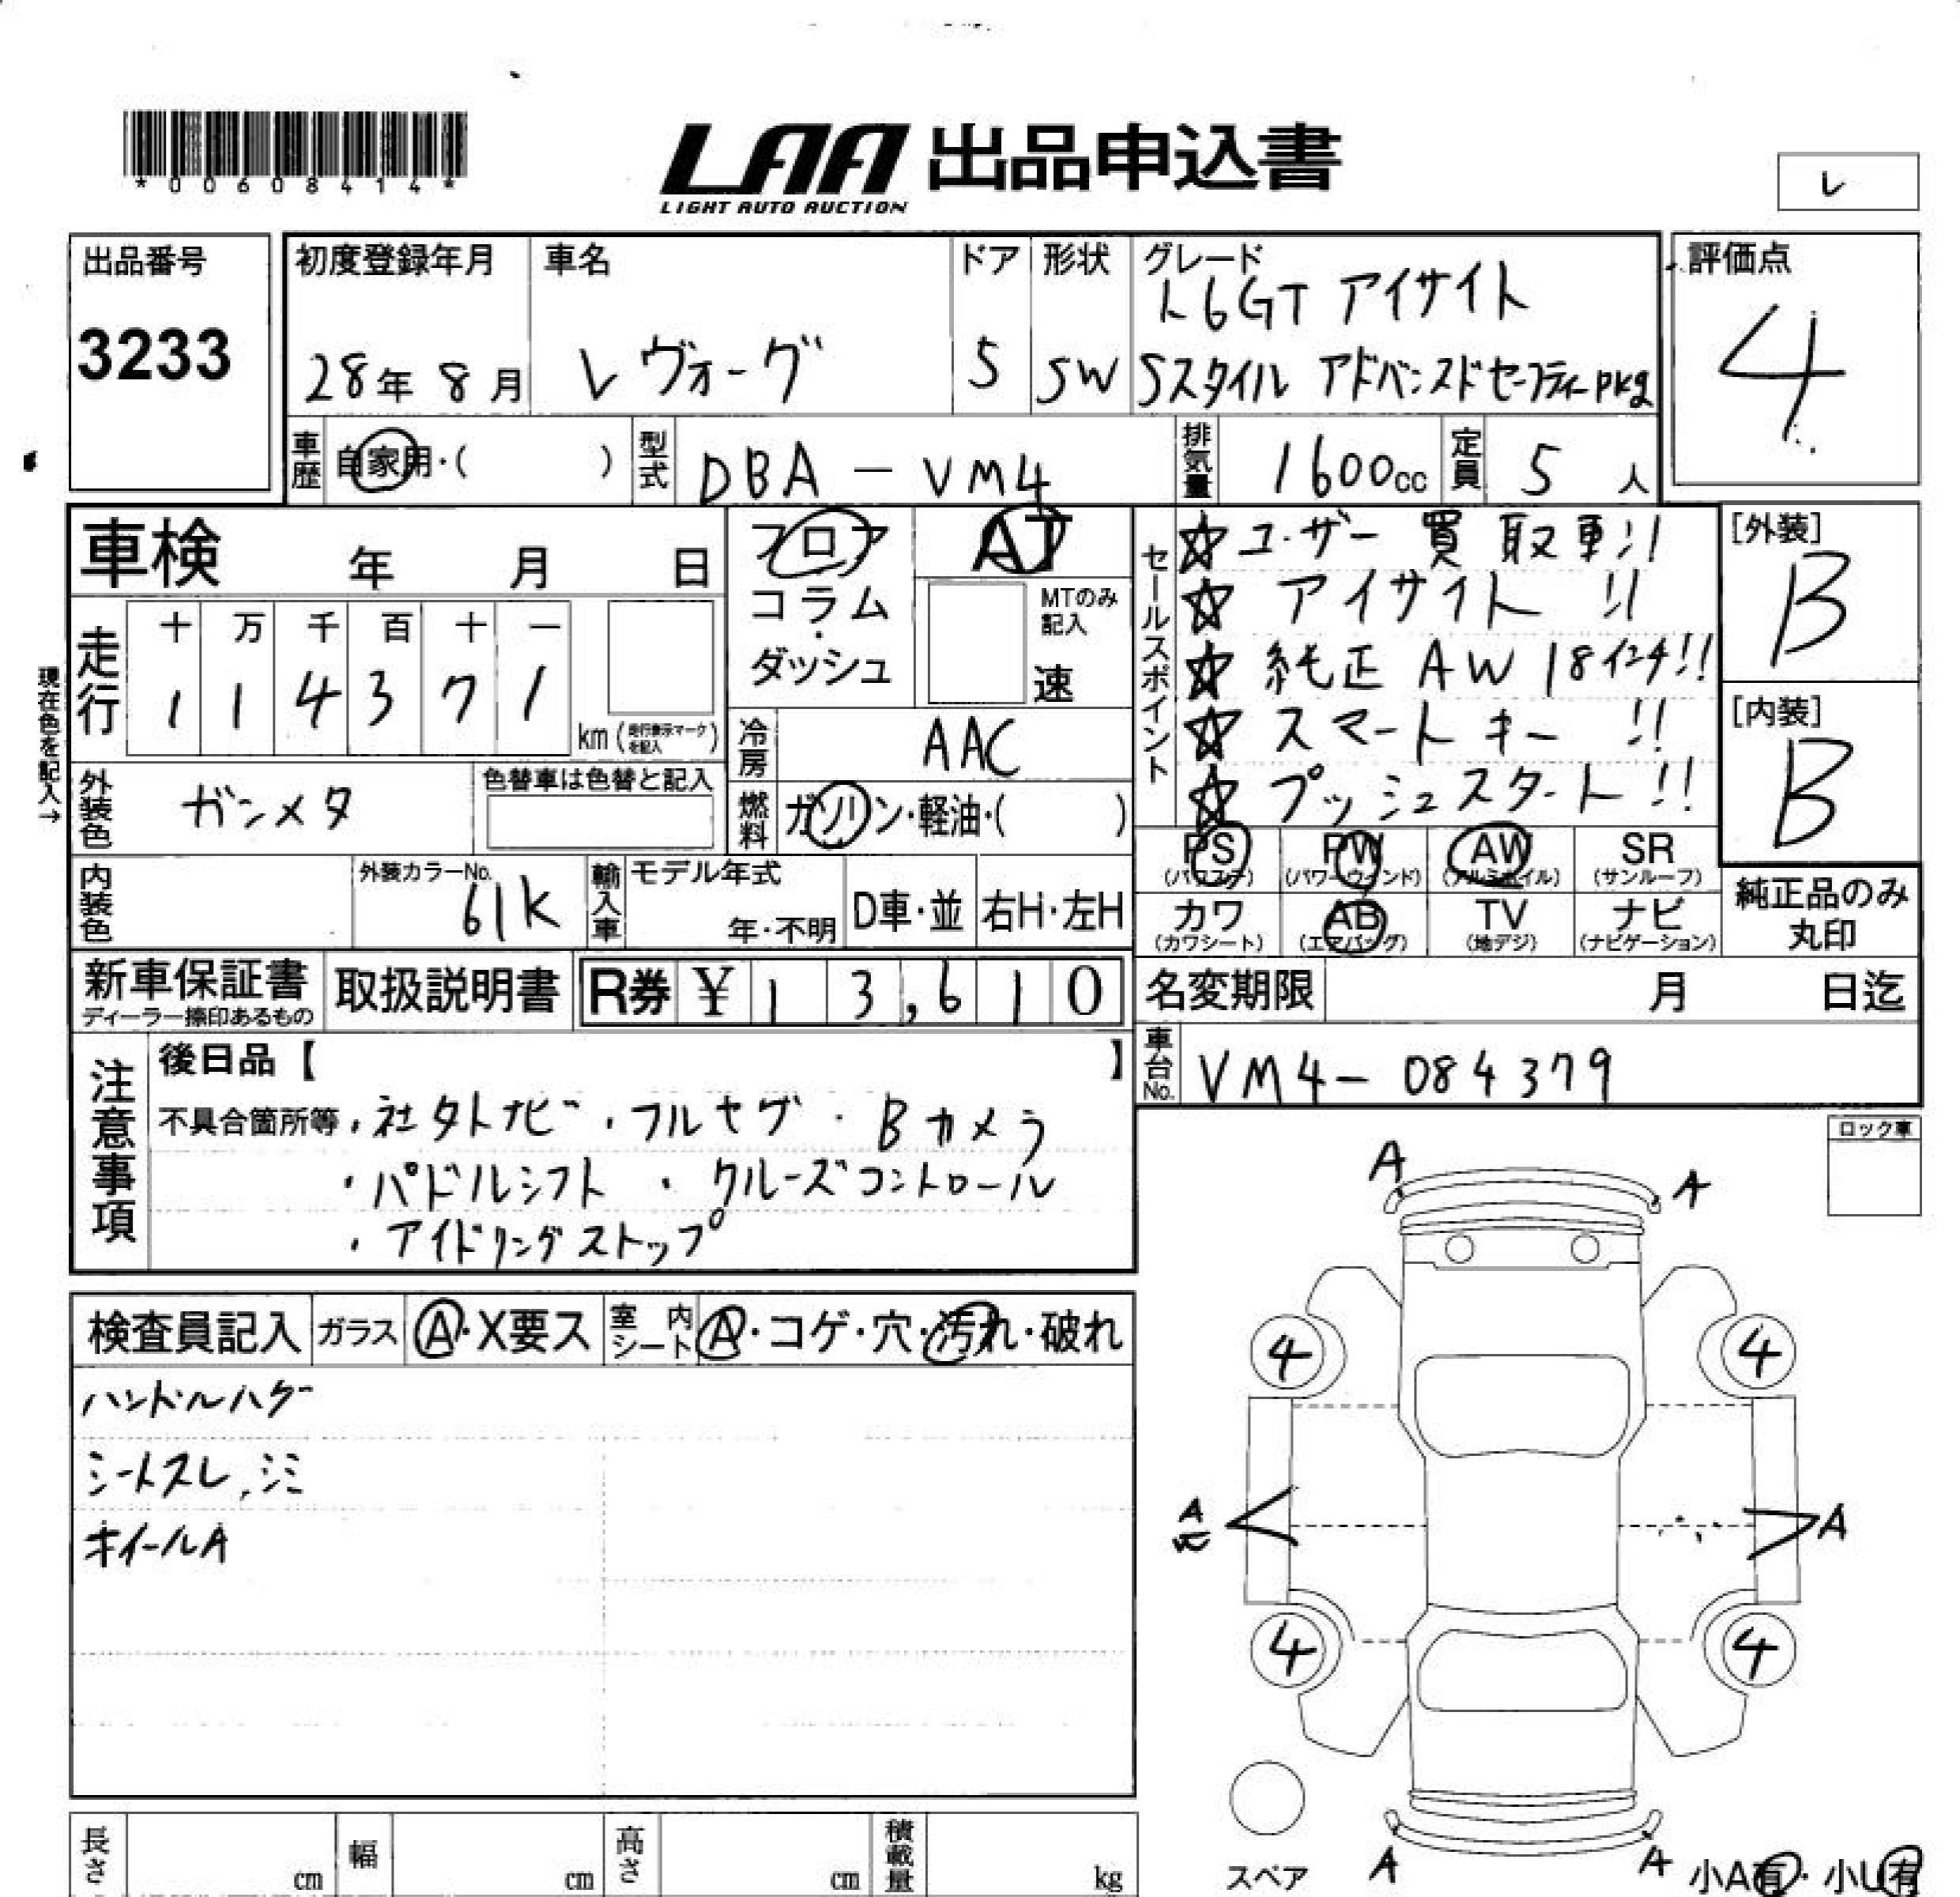 *00608414*
LAA 出品申込書
LIGHT AUTO AUCTION
レ
出品番号
3233
初度登録年月
28年 8月
車名
レヴォーグ
ドア
5
形状
SW
グレード
1.6GT アイサイト
Sスタイル アドバンスドセーフティーpkg
評価点
4
車歴 自家用・( )
型式 DBA - VM4
排気量 1600cc
定員 5人
車検 年 月 日
フロア
コラム
・
ダッシュ
AT
MTのみ
記入
速
セールスポイント
☆ ユーザー買取車!!
☆ アイサイト!!
☆ 純正AW18インチ!!
☆ スマートキー!!
☆ プッシュスタート!!
[外装]
B
[内装]
B
現在色を記入→
走行
十 万 千 百 十 一
1 1 4 3 7 1
km(走行表示マークを記入)
冷房 AAC
外装色 ガンメタ
色替車は色替と記入
燃料 ガソリン・軽油・( )
PS (パワステ)
PW (パワーウィンド)
AW (アルミホイル)
SR (サンルーフ)
カワ (カワシート)
AB (エアバッグ)
TV (地デジ)
ナビ (ナビゲーション)
純正品のみ
丸印
内装色
外装カラーNo.
61K
輸入車
モデル年式
年・不明
D車・並
右H・左H
新車保証書
ディーラー捺印あるもの
取扱説明書
R券 ¥ 1 3,6 1 0
名変期限 月 日迄
車台No. VM4-084379
注意事項
後日品【 】
不具合箇所等・社外ナビ・フルセグ・Bカメラ
・パドルシフト ・クルーズコントロール
・アイドリングストップ
ロック車
検査員記入
ガラス A・X要ス
室内シート A・コゲ・穴・汚れ・破れ
ハンドルハゲ
シートスレ,シミ
ホイールA
A A
4 4
A A
4 4
スペア
A A
小A有・小U有
長さ cm
幅 cm
高さ cm
積載量 kg